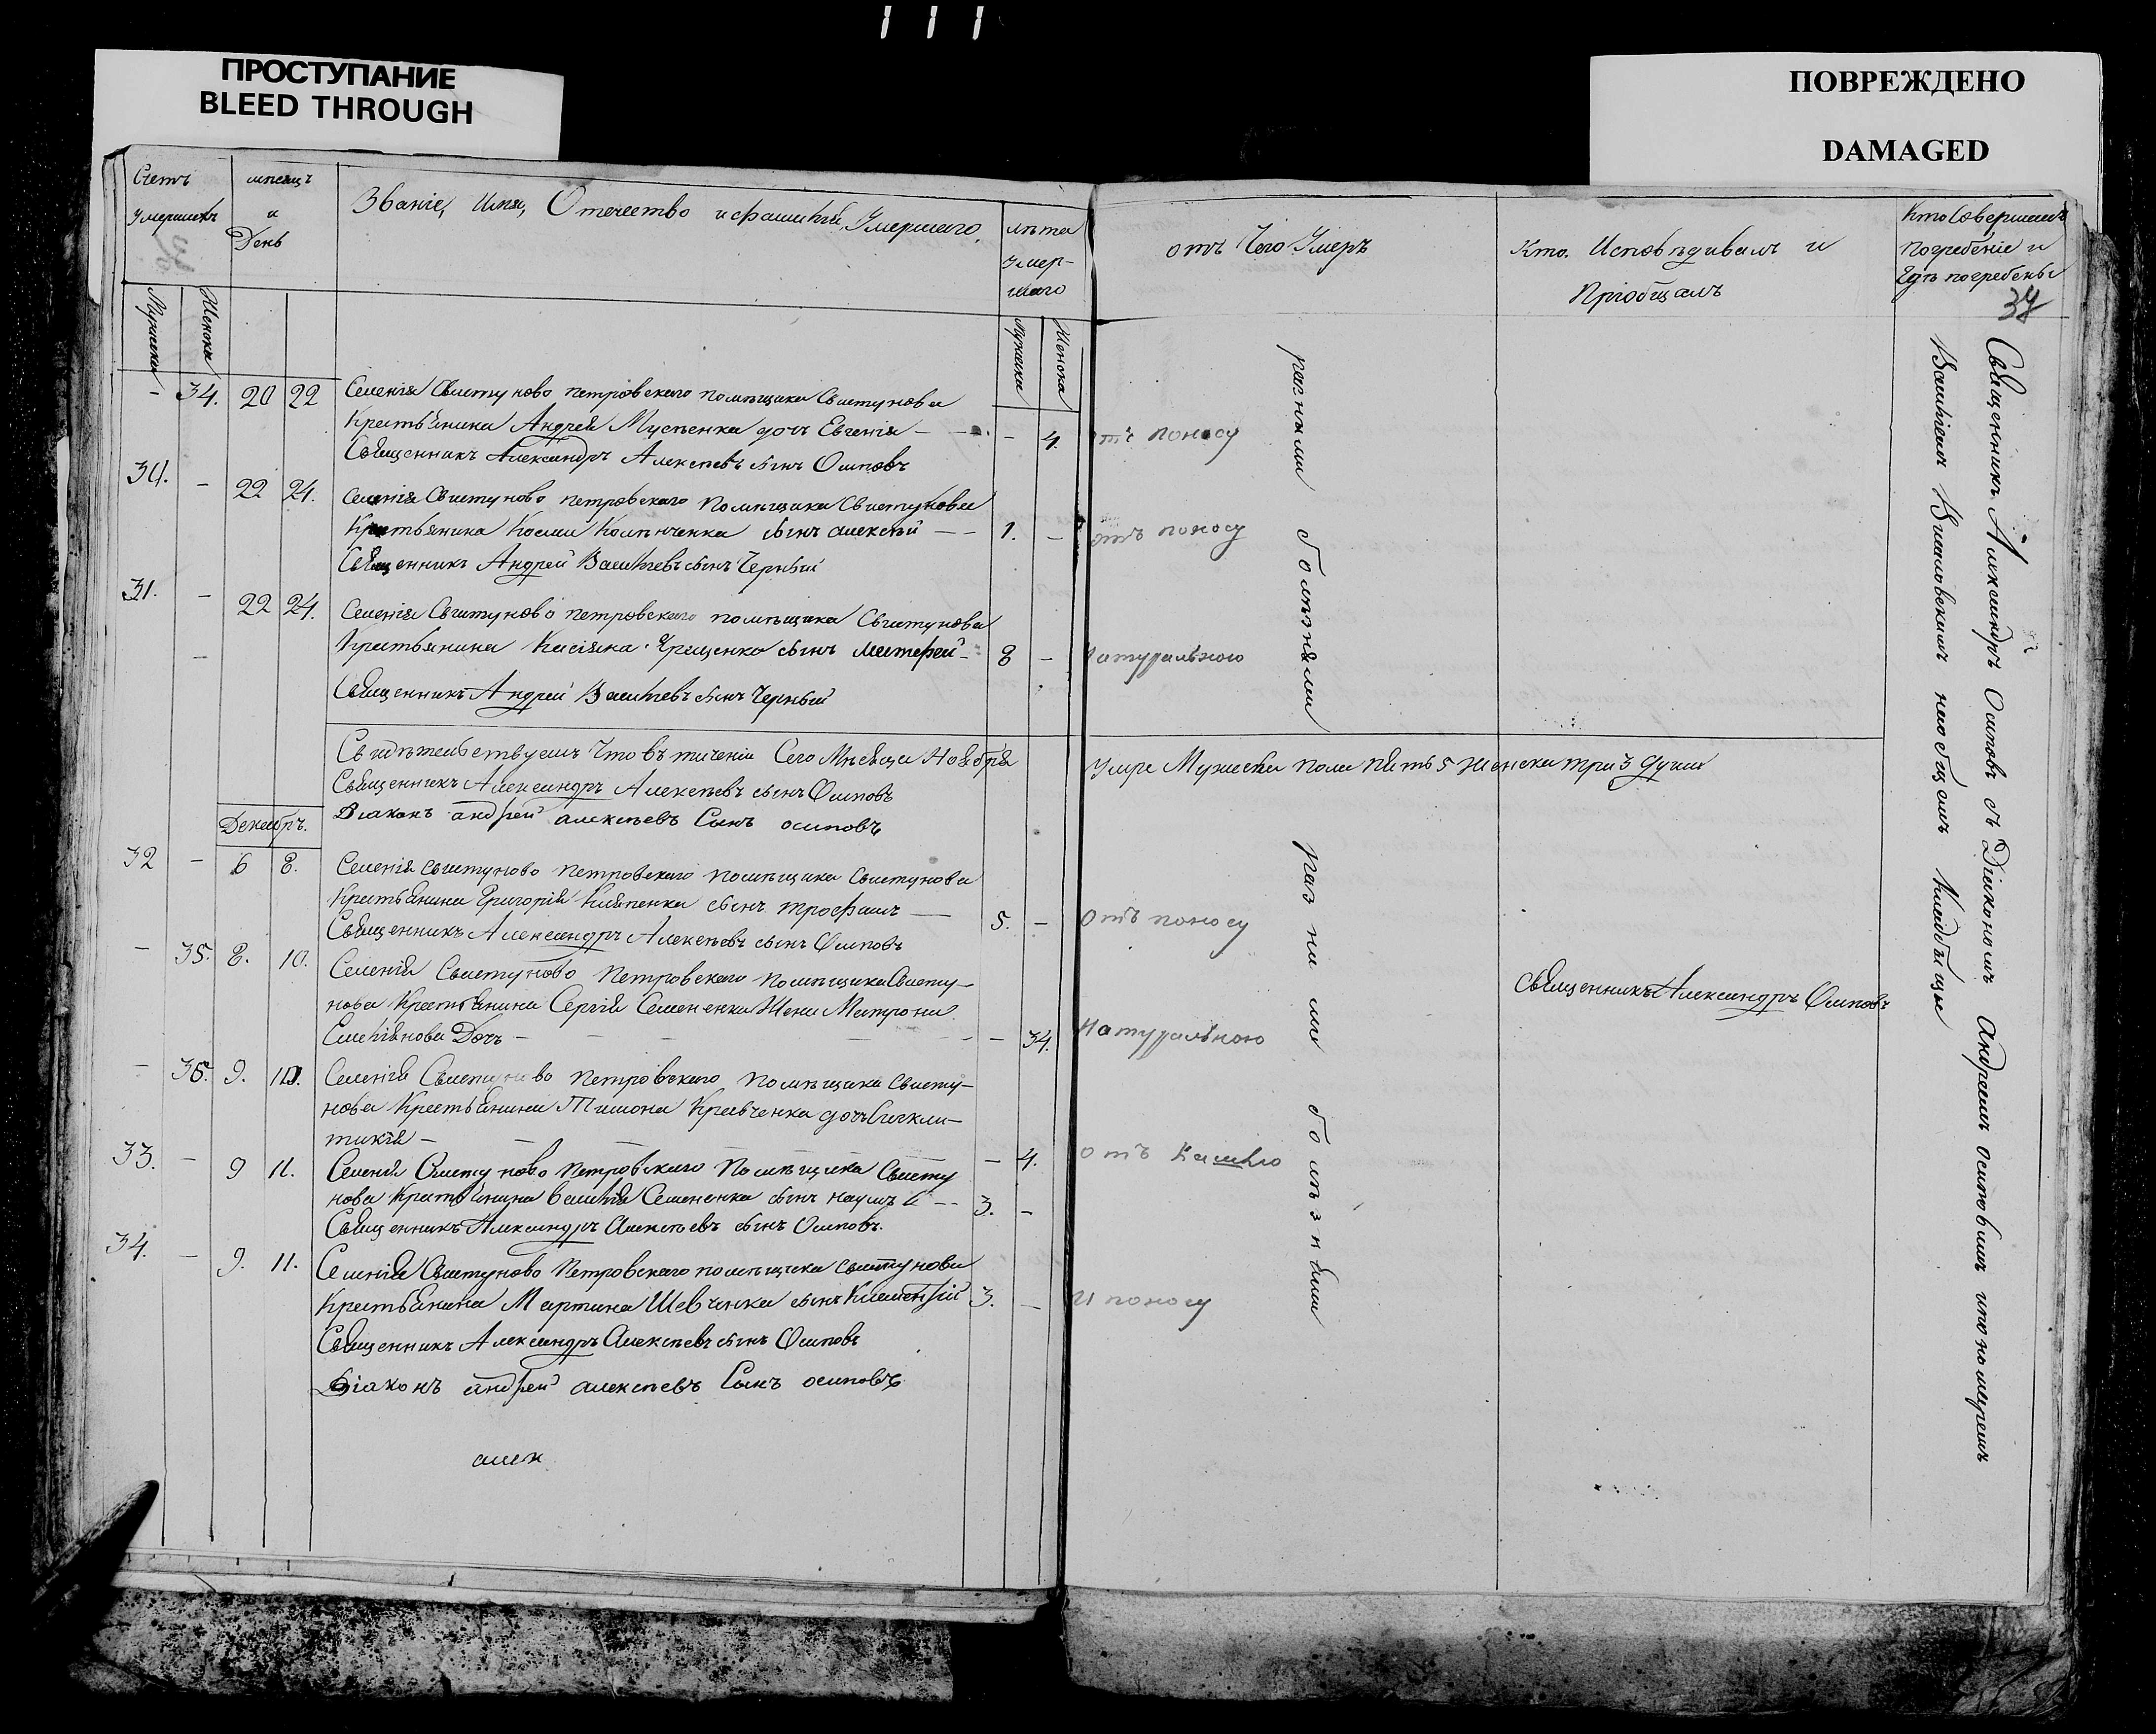 ПРОСТУПАНИЕ
BLEED THROUGH
ПОВРЕЖДЕНО
DAMAGED
Счетъ
Умершихъ
Мужеска
Женска
мѣсяцъ
и
День
Званіе, Имя, Отечество и фамилія, Умершаго
лѣта
Умер-
шаго
Мужеска
Женска
отъ Чего Умеръ
Кто Исповѣдивалъ и
Пріобщалъ
Кто Совершалъ
Погребеніе и
Гдѣ погребены
37
- 34. 20 22 Селенія Свистуново петровскаго помѣщика Свистунова
Крестьянина Андрей дочь Евгенія - - 4. отъ поносу
Священникъ Александръ Алексѣевъ сынъ Осиповъ
30. - 22 24. Селенія Свистуново петровскаго помѣщика Свистунова
Крестьянина Косми сынъ алексѣй - - 1. - отъ поносу
Священникъ Андрей Васильевъ сынъ Черный
31. - 22 24. Селенія Свистуново петровскаго помѣщика Свистунова
Крестьянина Касіяна Грищенко сынъ Матфей - 8 - Натуральною
Священникъ Андрей Васильевъ сынъ Черный
разними болѣзнями
Свидѣтельствуемъ Что въ теченіи Сего Мѣсяца Ноября Умре Мужеска пола пять 5 женска три 3 души
Священникъ Александръ Алексѣевъ сынъ Осиповъ
Діаконъ андрей алексѣевъ Сынъ осиповъ
Декабръ.
32 - 6 8. Селенія свистуново петровскаго помѣщика свистунова
Крестьянина Григорія сынъ трофимъ - 5. - отъ поносу
Священникъ Александръ Алексѣевъ сынъ Осиповъ
- 35. 8. 10. Селенія Свистуново Петровскаго помѣщика Свисту-
нова Крестьянина Сергія Семененка Жена Матрона
Дочь - - - - - 34. Натуральною
Священникъ Александръ Осиповъ
- 36. 9. 10. Селенія Свистуново петровскаго помѣщика свисту-
нова Крестьянина Тимона Кравченка дочь Синкли-
тикія - - 4. отъ Кашлю
33. - 9 11. Селенія Свистуново петровскаго помѣщика Свисту
нова Крестьянина василія Семененка сынъ наумъ - - 3. -
Священникъ Александръ Алексѣевъ сынъ Осиповъ.
34. - 9. 11. Селенія Свистуново Петровскаго помѣщика свистунова
Крестьянина Мартина Шевченка сынъ 3. - И поносу
Священникъ Александръ Алексѣевъ сынъ Осиповъ
Діаконъ андрей алексѣевъ Сынъ осиповъ
разними болѣзнями
алек
Священникъ Александръ Осиповъ съ Діакономъ Андреемъ осиповымъ и пономаремъ
Василіемъ на общемъ Кладбищѣ